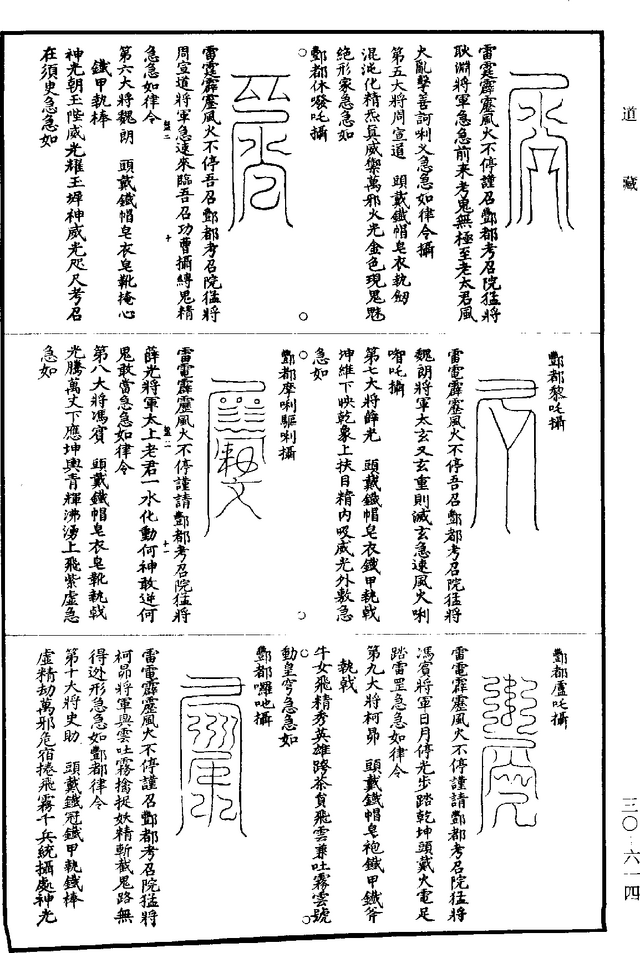 道藏
雷霆霹靂風火不停謹召酆都考召院猛將
耿淵將軍急急前來考鬼無極至老太君風
火亂擊善訶唎文急急如律令攝
第五大將周宣道　頭戴鐵帽皂衣執劒
混沌化精炁真威禦萬邪火光金色現鬼魅
絶形家急急如
酆都休發吒攝
雷霆霹靂風火不停吾召酆都考召院猛將
周宣道將軍急速來臨吾召功曹攝縛鬼精
急急如律令
第六大將魏朗　頭戴鐵帽皂衣皂靴掩心
鐵甲執棒
神光朝玉陛威光耀玉墀神威光咫尺考召
在須臾急急如
酆都黎吒攝
雷電霹靂風火不停吾召酆都考召院猛將
魏朗將軍太玄又玄重則滅玄急速風火唎
㗌吒攝
第七大將薛光　頭戴鐵帽皂衣鐵甲執戟
坤維下映乾象上扶目精内吸威光外敷急
急如
酆都摩唎驅唎攝
雷電霹靂風火不停謹請酆都考召院猛將
薛光將軍太上老君一水化動何神敢逆何
鬼敢當急急如律令
第八大將馮賓　頭戴鐵帽皂衣皂靴執戟
光騰萬丈下應坤輿青輝沸湧上飛紫虛急
急如
酆都盧吒攝
雷電霹靂風火不停謹請酆都考召院猛將
馮賓將軍日月停光步踏乾坤頭戴火電足
踏雷罡急急如律令
第九大將柯昴　頭戴鐵帽皂袍鐵甲鐵斧
執戟
牛女飛精秀英雄跨茶貟飛雲兼吐霧雲號
動皇穹急急如
酆都囉吔攝
雷電霹靂風火不停謹召酆都考召院猛將
柯昴將軍興雲吐霧擒捉妖精斬截鬼路無
得迯形急急如酆都律令
第十大將史助　頭戴鐵冠鐵甲執鐵棒
虛精劫萬邪危宿捲飛霧千兵統攝處神光
三〇-六一四